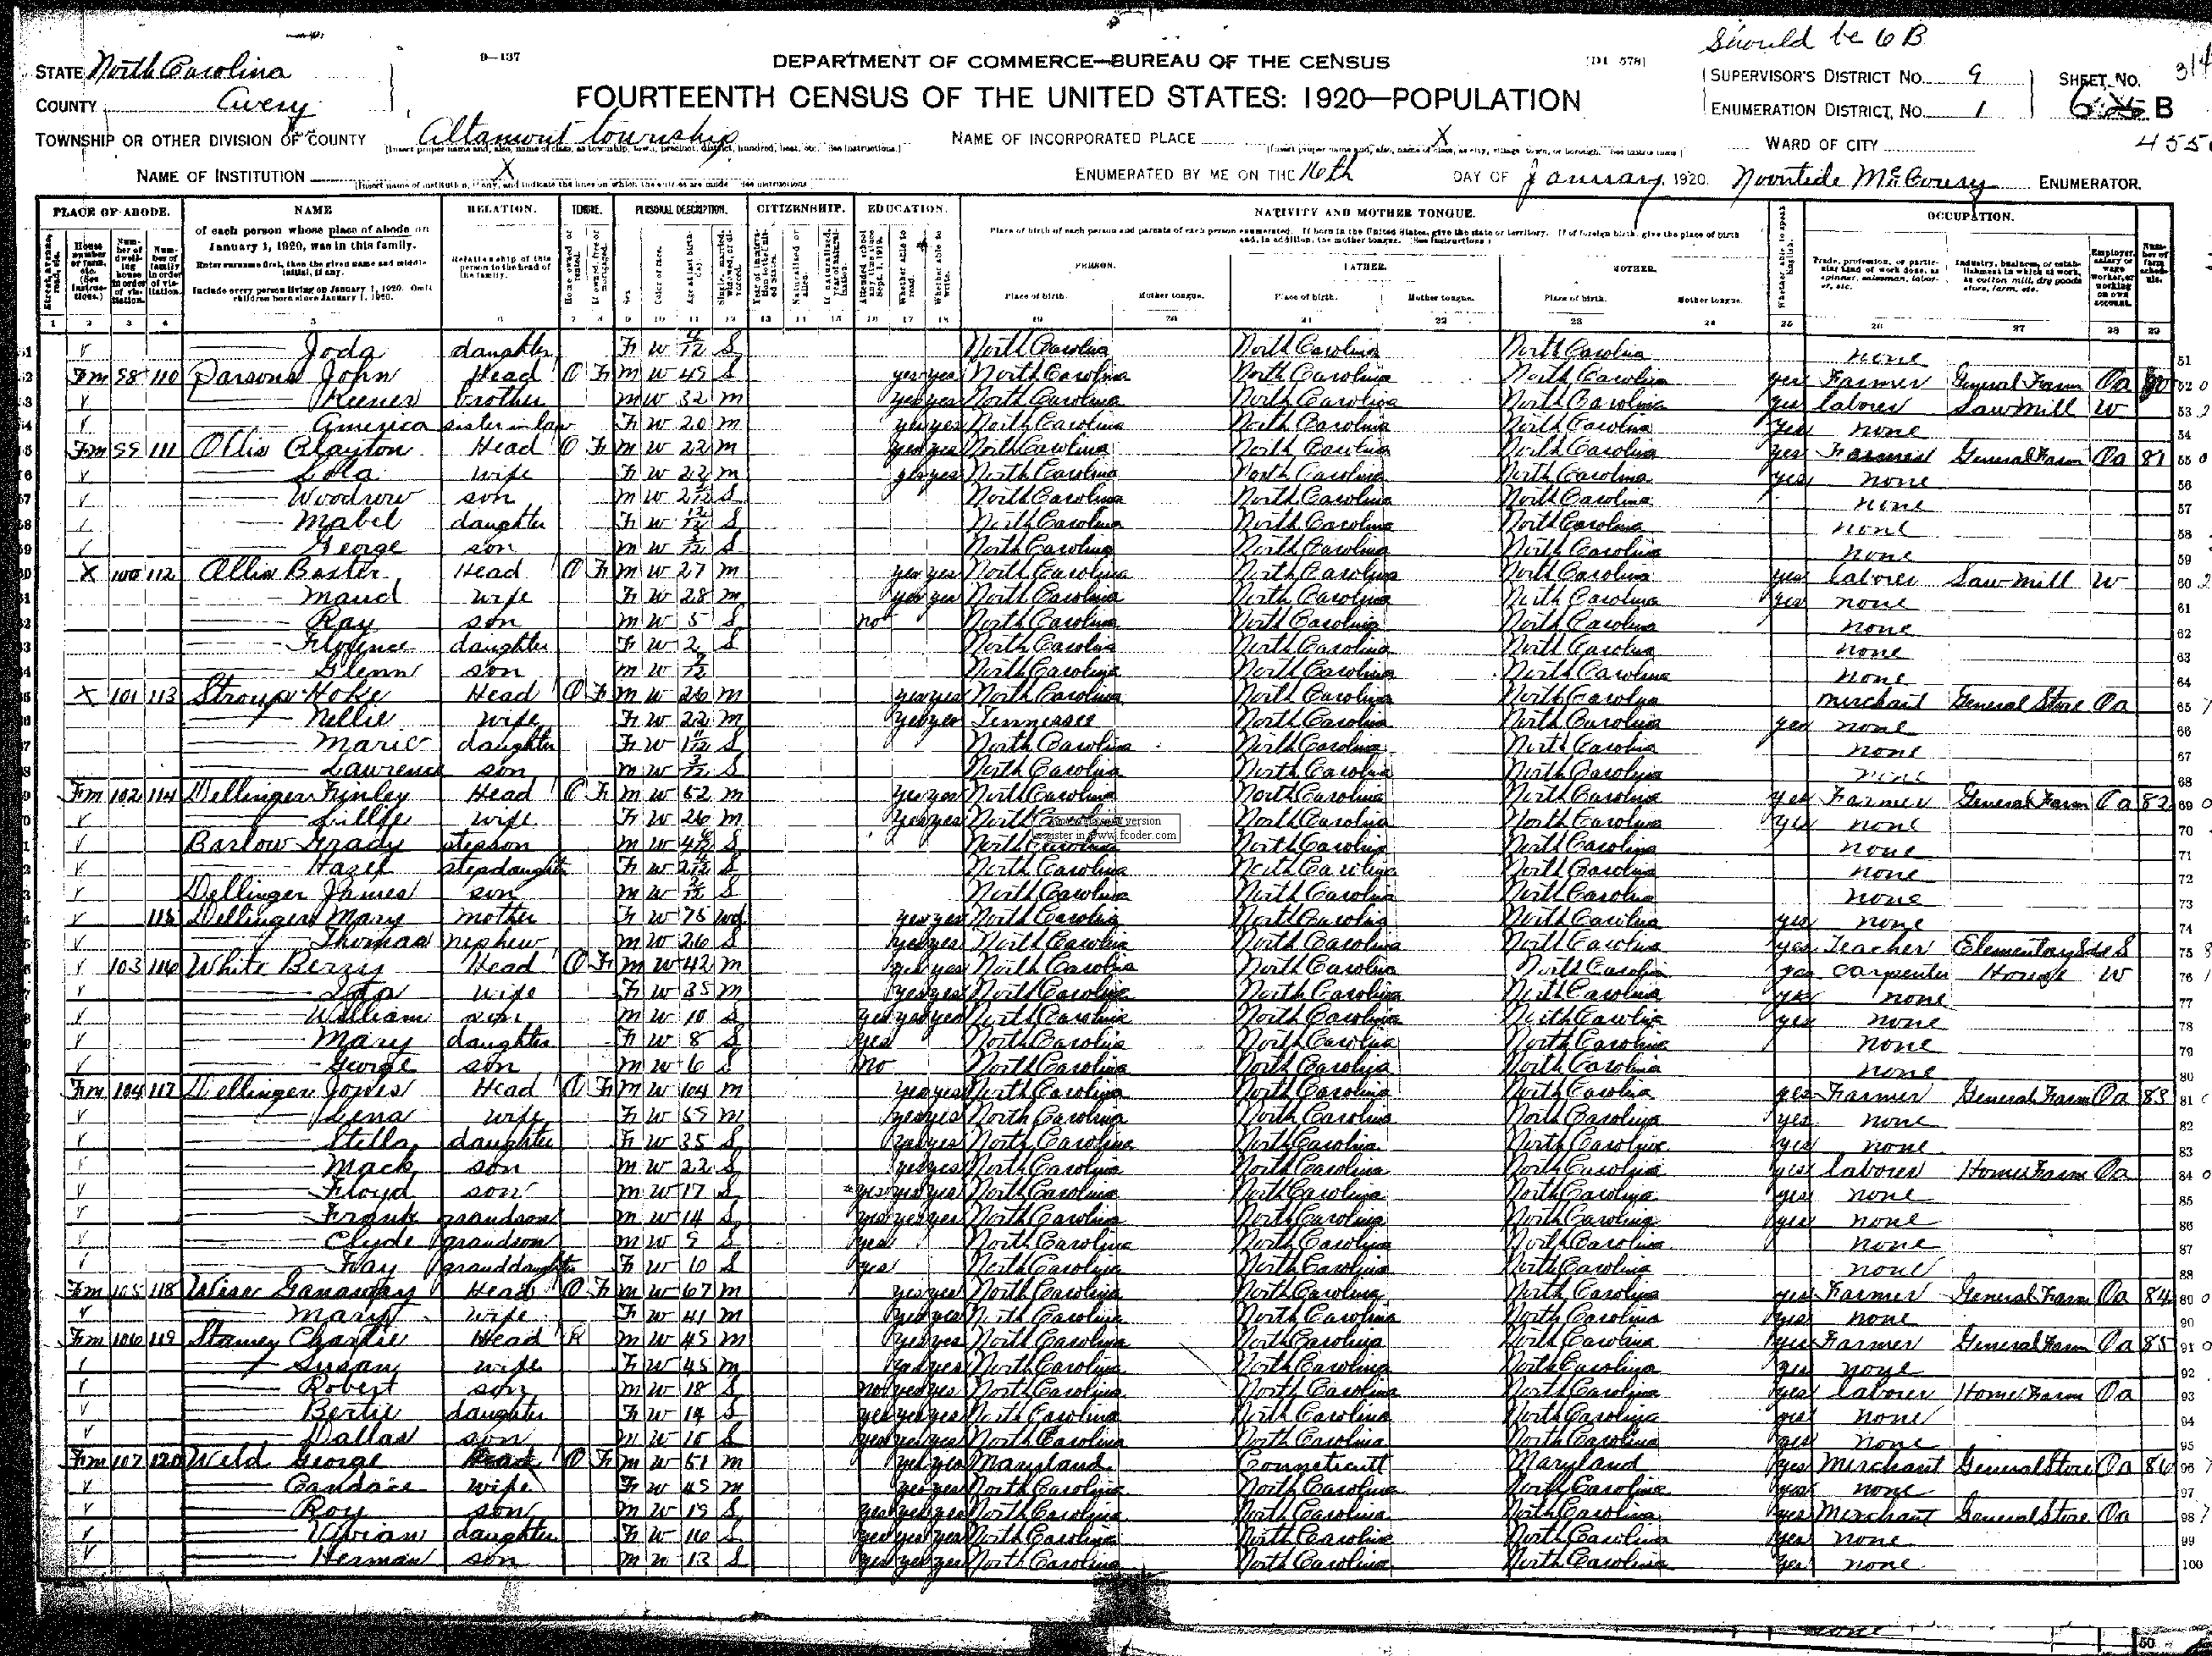 Should be 6 B
STATE North Carolina
9-137
DEPARTMENT OF COMMERCE—BUREAU OF THE CENSUS
[D1 578]
SUPERVISOR'S DISTRICT NO. 9
SHEET NO.
314
COUNTY Avery
FOURTEENTH CENSUS OF THE UNITED STATES: 1920—POPULATION
ENUMERATION DISTRICT, NO. 1
B
TOWNSHIP OR OTHER DIVISION OF COUNTY Altamont township
NAME OF INCORPORATED PLACE X
WARD OF CITY
455
NAME OF INSTITUTION X
ENUMERATED BY ME ON THE 16th DAY OF January, 1920. Noontide McCoury ENUMERATOR.
PLACE OF ABODE. NAME RELATION. TENURE. PERSONAL DESCRIPTION. CITIZENSHIP. EDUCATION. NATIVITY AND MOTHER TONGUE. OCCUPATION.
of each person whose place of abode on January 1, 1920, was in this family.
Enter surname first, then the given name and middle initial, if any.
Include every person living on January 1, 1920. Omit children born since January 1, 1920.
Relationship of this person to the head of the family.
PERSON. FATHER. MOTHER.
Place of birth. Mother tongue. Place of birth. Mother tongue. Place of birth. Mother tongue.
1 2 3 4 5 6 7 8 9 10 11 12 13 14 15 16 17 18 19 20 21 22 23 24 25 26 27 28 29
Joda daughter F W 4/12 S North Carolina North Carolina North Carolina none 51
Fm 98 110 Parsons John Head O F M W 49 S yes yes North Carolina North Carolina North Carolina yes Farmer General Farm Oa 52
Keener brother M W 32 M yes yes North Carolina North Carolina North Carolina yes laborer Saw mill W 53
America sister in law F W 20 M yes yes North Carolina North Carolina North Carolina yes none 54
Fm 99 111 Ollis Clayton Head O F M W 22 M yes yes North Carolina North Carolina North Carolina yes Farmer General Farm Oa 81 55
Lola wife F W 22 M yes yes North Carolina North Carolina North Carolina yes none 56
Woodrow son M W S North Carolina North Carolina North Carolina none 57
Mabel daughter F W S North Carolina North Carolina North Carolina none 58
George son M W S North Carolina North Carolina North Carolina none 59
X 100 112 Ollis Baster Head O F M W 27 M yes yes North Carolina North Carolina North Carolina yes laborer Saw mill W 60
Maud wife F W 28 M yes yes North Carolina North Carolina North Carolina yes none 61
Ray son M W 5 S no North Carolina North Carolina North Carolina none 62
Florence daughter F W 2 S North Carolina North Carolina North Carolina none 63
Glenn son M W North Carolina North Carolina North Carolina none 64
X 101 113 Stroup Hoke Head O F M W 26 M yes yes North Carolina North Carolina North Carolina merchant General Store Oa 65
Nellie wife F W 22 M yes yes Tennessee North Carolina North Carolina yes none 66
Marie daughter F W 1 11/12 S North Carolina North Carolina North Carolina none 67
Lawrence son M W 3/12 S North Carolina North Carolina North Carolina none 68
Fm 102 114 Dellinger Finley Head O F M W 52 M yes yes North Carolina North Carolina North Carolina yes Farmer General Farm Oa 82 69
Lillie wife F W 26 M yes yes North Carolina North Carolina North Carolina yes none 70
Barlow Grady stepson M W S North Carolina North Carolina North Carolina none 71
Hazel stepdaughter F W S North Carolina North Carolina North Carolina none 72
Dellinger James son M W S North Carolina North Carolina North Carolina none 73
115 Dellinger Mary mother F W 75 wd yes yes North Carolina North Carolina North Carolina yes none 74
Thomas nephew M W 26 S yes yes North Carolina North Carolina North Carolina yes Teacher Elementary 75
103 116 White Berry Head O F M W 42 M yes yes North Carolina North Carolina North Carolina yes carpenter House W 76
wife F W 35 M yes yes North Carolina North Carolina North Carolina yes none 77
William son M W 10 S yes yes yes North Carolina North Carolina North Carolina yes none 78
Mary daughter F W 8 S yes North Carolina North Carolina North Carolina none 79
George son M W 6 S no North Carolina North Carolina North Carolina none 80
Fm 104 117 Dellinger Jones Head O F M W M yes yes North Carolina North Carolina North Carolina yes Farmer General Farm Oa 83 81
Lena wife F W 59 M yes yes North Carolina North Carolina North Carolina yes none 82
Stella daughter F W 35 S yes yes North Carolina North Carolina North Carolina yes none 83
Mack son M W 22 S yes yes North Carolina North Carolina North Carolina yes laborer Home Farm Oa 84
Floyd son M W 17 S yes yes yes North Carolina North Carolina North Carolina yes none 85
Frank grandson M W 14 S yes yes yes North Carolina North Carolina North Carolina yes none 86
Clyde grandson M W 9 S yes North Carolina North Carolina North Carolina none 87
Fay granddaughter F W 10 S yes North Carolina North Carolina North Carolina none 88
Fm 105 118 Wise Ganaway Head O F M W 67 M yes yes North Carolina North Carolina North Carolina yes Farmer General Farm Oa 84 89
Mary wife F W 41 M yes yes North Carolina North Carolina North Carolina yes none 90
Fm 106 119 Stamey Charlie Head R M W 45 M yes yes North Carolina North Carolina North Carolina yes Farmer General Farm Oa 85 91
Susan wife F W 45 M yes yes North Carolina North Carolina North Carolina yes none 92
Robert son M W 18 S no yes yes North Carolina North Carolina North Carolina yes laborer Home Farm Oa 93
Bertie daughter F W 14 S yes yes yes North Carolina North Carolina North Carolina yes none 94
Dallas son M W 10 S yes yes yes North Carolina North Carolina North Carolina yes none 95
Fm 107 120 Weld George Head O F M W 51 M yes yes Maryland Conneticutt Maryland yes Merchant General Store Oa 86 96
Candace wife F W 45 M yes yes North Carolina North Carolina North Carolina yes none 97
Roy son M W 19 S yes yes yes North Carolina North Carolina North Carolina yes Merchant General Store Oa 98
Vivian daughter F W 16 S yes yes yes North Carolina North Carolina North Carolina yes none 99
Herman son M W 13 S yes yes yes North Carolina North Carolina North Carolina yes none 100
none
50